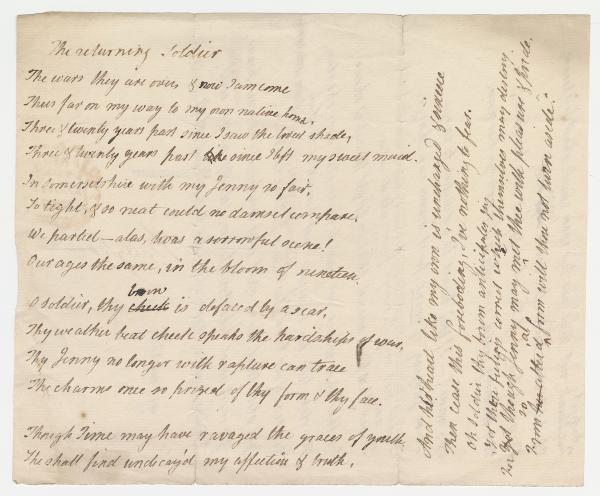 The returning Soldier
The wars they are over, & now I am come
Thus far on my way to my own native home,
Three & twenty years past since I saw the lov'd shade,
Three & twenty years past since I left my sweet maid.
In Somersetshire with my Jenny so fair,
So tight, & so neat could no damsel compare,
We parted — alas, twas a sorrowful scene!
Our ages the same, in the bloom of nineteen.
brow
O Soldier, thy cheek is defaced by a scar,
Thy weather beat cheek speaks the hardships of war,
Thy Jenny no longer with rapture can trace
The charms once so prized of thy form & thy face.
Though Time may have ravaged the graces of youth
She shall find undecay'd my affection & truth,
And heart like my own is unchanged & sincere
Then cease this foreboding, I've nothing to fear.
Oh Soldier thy bosom anticipates joy
thy correct which themselves may destroy
though Jenny may meet thee with pleasure & pride,
From altered form will thou not turn aside?